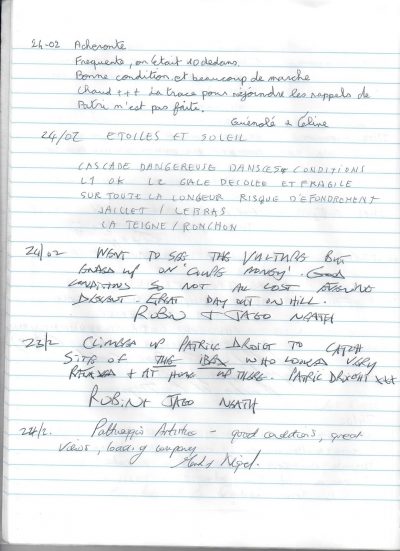 24-02 Acheronte
Frequente, on était 10 dedans.
Bonne condition et beaucoup de marche
Chaud +++ La trace pour rejoindre les rappels de
Patri n'est pas faite.
Guénolé & Celine
24/02 ETOILES ET SOLEIL
CASCADE DANGEREUSE DANS CES CONDITIONS
L1 OK L2 GALE DECOLEE ET FRAGILE
SUR TOUTE LA LONGEUR RISQUE D'EFONDREMENT
JAILLET / LEBRAS
LA TEIGNE / RONCHON
24/02 WENT TO SEE THE VULTURE BUT
ENDED UP ON 'COUPE MONEY'. GOOD
CONDITIONS SO NOT ALL LOST
DESCENT. GREAT DAY OUT ON HILL.
ROBIN & JAGO NEATH
23/2 CLIMBED UP PATRICK DROIST TO CATCH
SITE OF THE IBEX WHO LOOKED VERY
+ AT HOME UP THERE. PATRICK XXX
ROBIN + JAGO NEATH
24/2. Pathaggio Artistica - good conditions, great
views, company
Nigel.